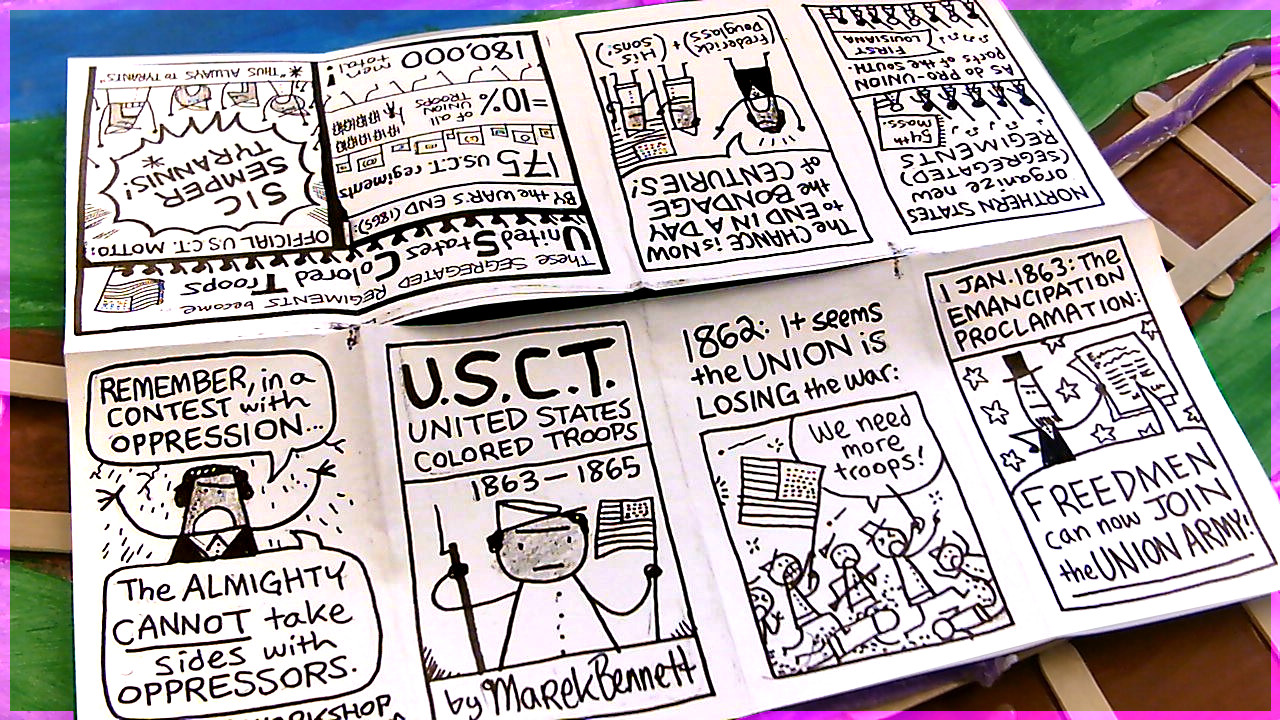 U.S.C.T.
UNITED STATES
COLORED TROOPS
1863 – 1865
by MAREK BENNETT
1862: It seems
the UNION is
LOSING the war:
We need
more
troops!
1 JAN. 1863: The
EMANCIPATION
PROCLAMATION:
FREEDMEN
can now JOIN
the UNION ARMY!
NORTHERN STATES
organize new
(SEGREGATED)
REGIMENTS
54th
MASS.
As do PRO-UNION
parts of the SOUTH.
FIRST
LOUISIANA
The CHANCE is NOW
to END IN A DAY
the BONDAGE
of CENTURIES!
(Frederick
Douglass) + (His
Sons!)
These SEGREGATED REGIMENTS become
United States
Colored Troops
BY the WAR'S END (1865):
175 U.S.C.T. regiments
=10% of all
UNION
TROOPS
180,000 men
total!
OFFICIAL U.S.C.T. MOTTO:
SIC
SEMPER
TYRANNIS! *
* "THUS ALWAYS to TYRANTS"
REMEMBER, in a
CONTEST with
OPPRESSION...
The ALMIGHTY
CANNOT take
sides with
OPPRESSORS.
WORKSHOP